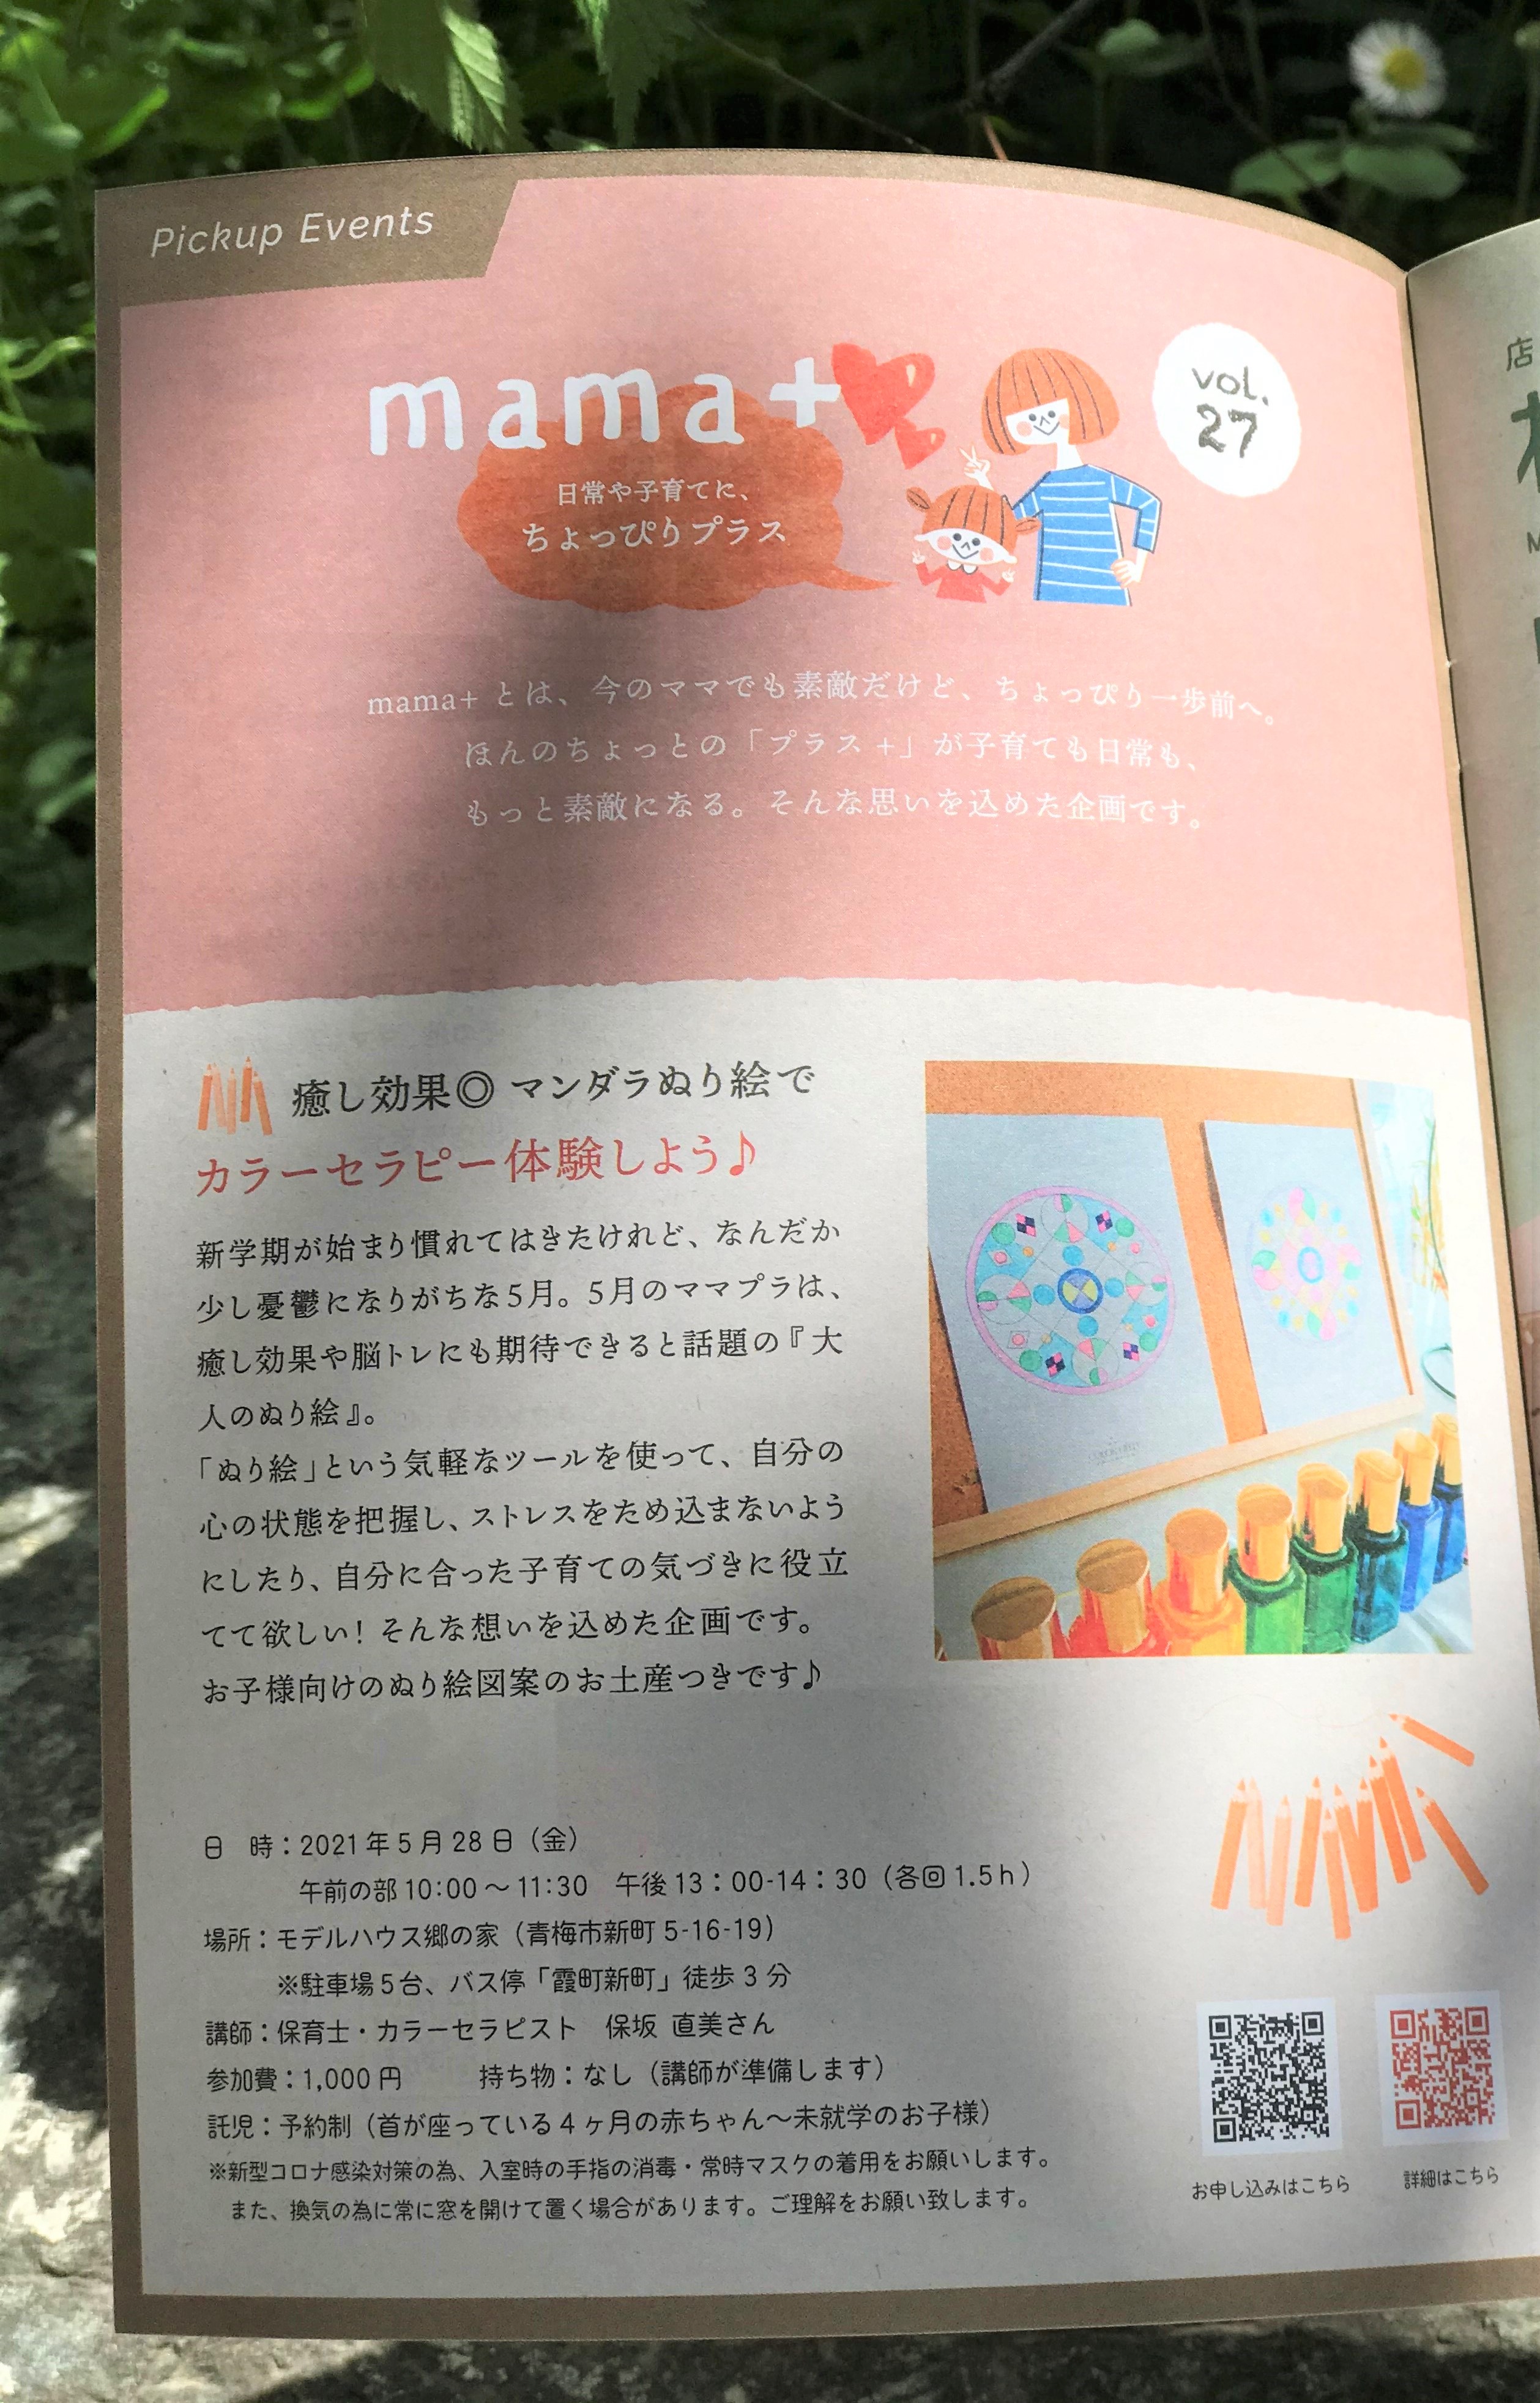 Pickup Events
mama+
vol.
27
日常や子育てに、
ちょっぴりプラス
mama+ とは、今のママでも素敵だけど、ちょっぴり一歩前へ。
ほんのちょっとの「プラス +」が子育ても日常も、
もっと素敵になる。そんな思いを込めた企画です。
癒し効果◎ マンダラぬり絵で
カラーセラピー体験しよう♪
新学期が始まり慣れてはきたけれど、なんだか
少し憂鬱になりがちな5月。5月のママプラは、
癒し効果や脳トレにも期待できると話題の『大
人のぬり絵』。
「ぬり絵」という気軽なツールを使って、自分の
心の状態を把握し、ストレスをため込まないよう
にしたり、自分に合った子育ての気づきに役立
てて欲しい！そんな想いを込めた企画です。
お子様向けのぬり絵図案のお土産つきです♪
日　時：2021年5月28日（金）
午前の部10:00～11:30　午後13：00-14：30（各回1.5h）
場所：モデルハウス郷の家（青梅市新町5-16-19）
※駐車場5台、バス停「霞町新町」徒歩3分
講師：保育士・カラーセラピスト　保坂 直美さん
参加費：1,000円　　持ち物：なし（講師が準備します）
託児：予約制（首が座っている4ヶ月の赤ちゃん～未就学のお子様）
※新型コロナ感染対策の為、入室時の手指の消毒・常時マスクの着用をお願いします。
また、換気の為に常に窓を開けて置く場合があります。ご理解をお願い致します。
お申し込みはこちら
詳細はこちら
店